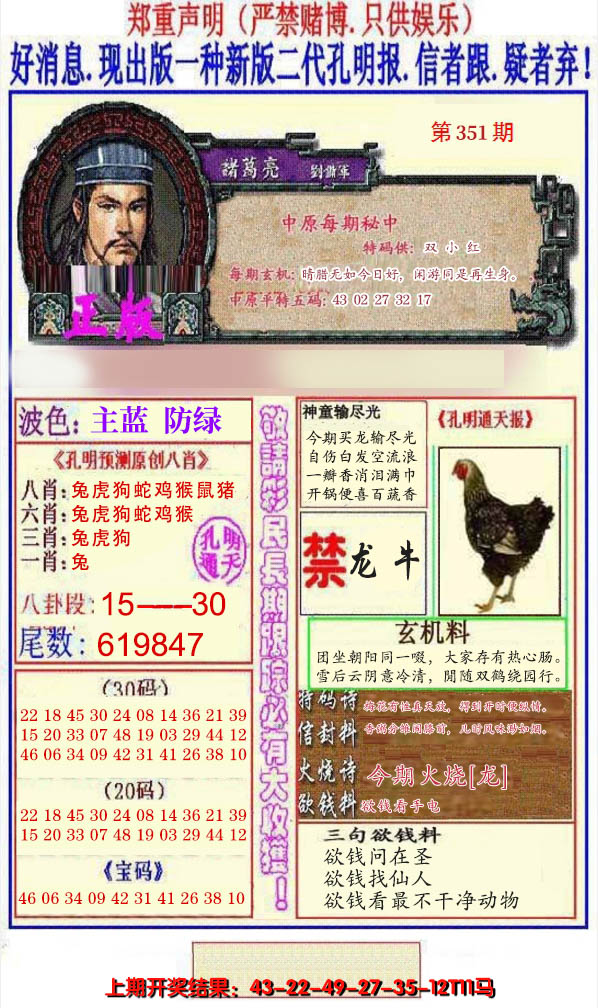 郑重声明（严禁赌博.只供娱乐）
好消息.现出版一种新版二代孔明报.信者跟.疑者弃!
第351期
諸葛亮
中原每期秘中
特码供：双 小 红
每期玄机：晴腊无如今日好，闲游同是再生身。
中原平特五码：43 02 27 32 17
正版
波色：主蓝 防绿
《孔明预测原创八肖》
八肖：兔虎狗蛇鸡猴鼠猪
六肖：兔虎狗蛇鸡猴
三肖：兔虎狗
一肖：兔
孔明
通天
八卦段：15----30
尾数：619847
（30码）
22 18 45 30 24 08 14 36 21 39
15 20 33 07 48 19 03 29 44 12
46 06 34 09 42 31 41 26 38 10
（20码）
22 18 45 30 24 08 14 36 21 39
15 20 33 07 48 19 03 29 44 12
《宝码》
46 06 34 09 42 31 41 26 38 10
敬請彩民長期跟踪必有大收獲！
神童输尽光
今期买龙输尽光
自伤白发空流浪
一瓣香消泪满巾
开锅便喜百蔬香
《孔明通天报》
禁 龙 牛
玄机料
团坐朝阳同一啜，大家存有热心肠。
雪后云阴意冷清，閒随双鹤绕园行。
特码诗
梅花有性真天放，得到开时便纵情。
信封料
香粥分雏闹膝前，儿时风味渺如烟。
火烧诗 今期火烧[龙]
欲钱料 欲钱看手电
三句欲钱料
欲钱问在圣
欲钱找仙人
欲钱看最不干净动物
上期开奖结果：43-22-49-27-35-12T11马